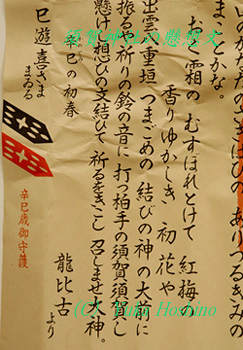 ありつるきみの
まことかな。
おき霜の むすほれとけて 紅梅の
香りゆかしき 初花や
出雲八重垣 つまごめの 結びの神の大前に
振るや祈りの鈴の音に 打つ拍手の須賀須賀し
懸けし想ひの文結びて 祈るをきこし 召しませ大神。
辛巳の初春
龍比古 より
巳遊喜さま
まゐる
辛巳歳御守護
須賀神社の懸想文
(C) Yuka Hoshino